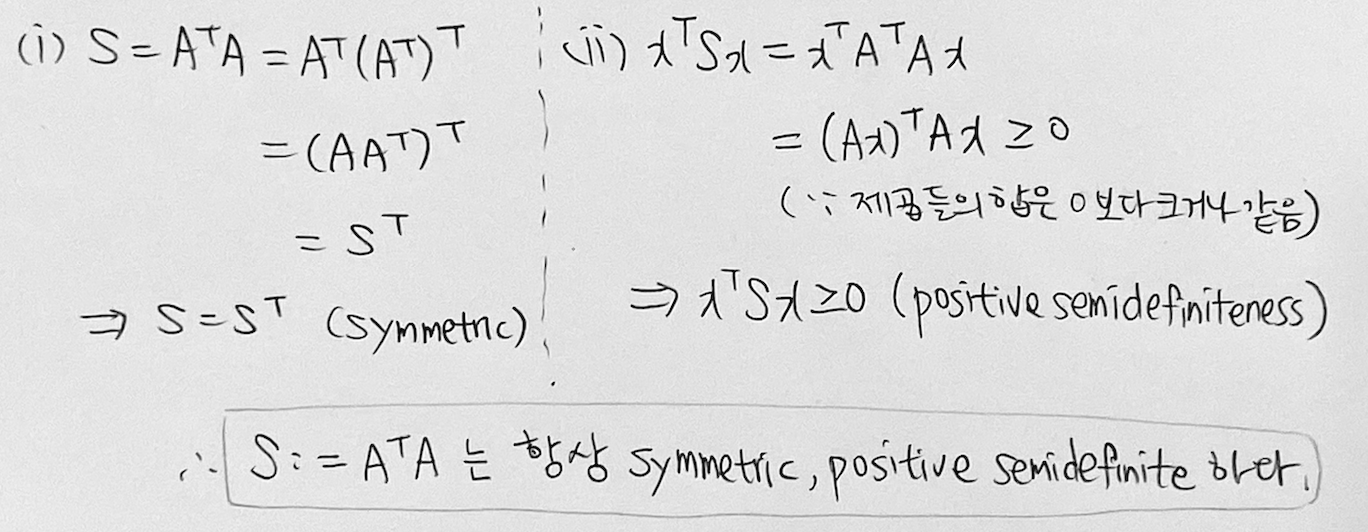 (i) S = AᵀA = Aᵀ(Aᵀ)ᵀ
= (AAᵀ)ᵀ
= Sᵀ
⇒ S = Sᵀ (symmetric)
(ii) xᵀSx = xᵀAᵀAx
= (Ax)ᵀAx ≥ 0
(∵ 제곱들의 합은 0보다 크거나 같음)
⇒ xᵀSx ≥ 0 (positive semidefiniteness)
∴ S := AᵀA 는 항상 symmetric, positive semidefinite 하다.